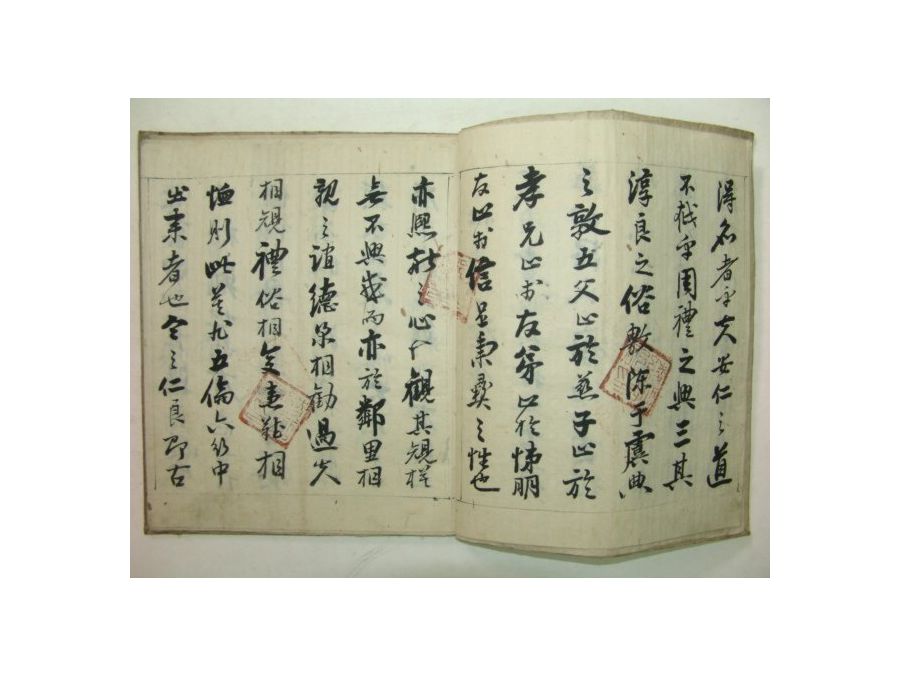 得名者乎夫安仁之道
不越乎周禮之典三其
淳良之俗敷陳于虞典
之敦五父止於慈子止於
孝兄止於友弟止於悌朋
友止於信是秉彝之性也
亦熙於之心人觀其規模
無不興感而亦於鄰里相
親之誼德業相勸過失
相規禮俗相交患難相
恤則此莫非五倫六行中
出來者也今之仁良即古